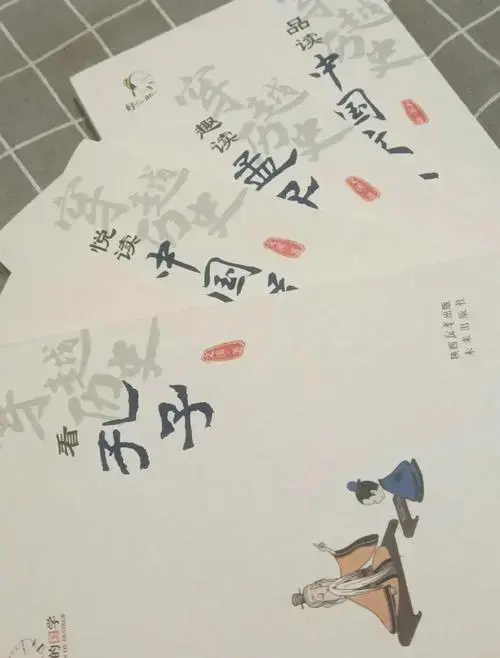 穿越历史
看孔子
陕西新华出版
未来出版社
的国学
穿越历史
悦读
中国
穿越历史
趣读
孟子
穿越历史
品读
中国